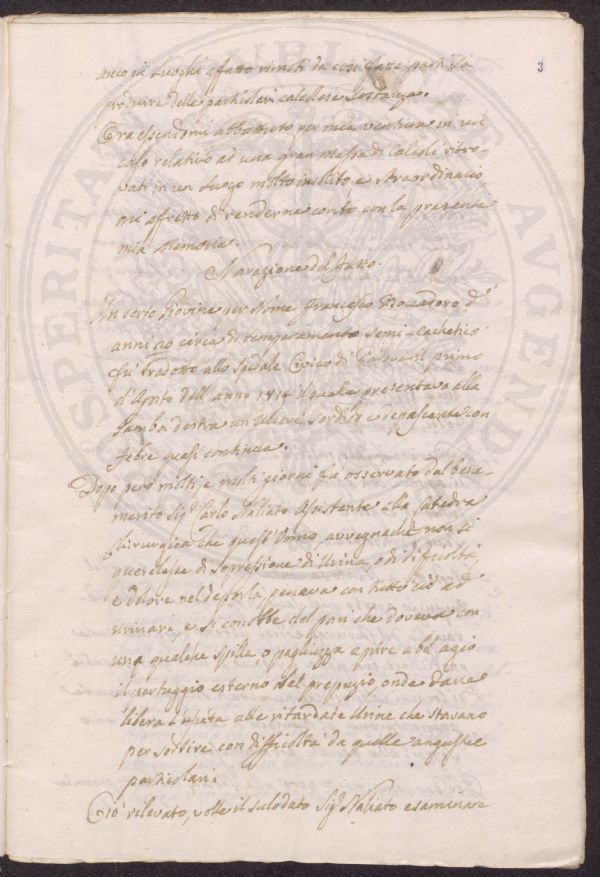 3
anco in luoghi affatto rimoti da così fatte parti sia
produrre delle particolari calcolose sostanze.
Ora essendomi abbattuto per mia ventura in un
caso relativo ad una gran messe di calcoli ritro-
vati in un luogo molto insolito e straordinario
mi affretto di renderne conto con la presente
mia Memoria.
Narazione del fatto.
Un certo Giovine per Nome Francesco Boccadoro d'
anni 20 circa di temperamento semi-cachetico
fù tradotto allo Spedale Civico di Padova il primo
d'Agosto dell'anno 1814 il quale presentava alla
Gamba destra un Ulcere sordido e depascente con
febre quasi continua.
Dopo però molti, e molti giorni fù osservato dal bene-
merito Sigr Carlo Naliato Assistente alla Catedra
Chirurgica che quest'Uomo, avvegnachè non si
querelasse di soppressione di Urina, o di difficoltà,
e dolore nel deporla, penava con tutto ciò ad
urinare, e si conobbe del pari che doveva con
una qualche spilla, o pagliuzza aprire a bel agio
il pertuggio esterno del prepuzio, onde dare
libera uscita alle ritardate Urine che stavano
per sortire con difficoltà da quelle angustie
particolari.
Ciò rilevato, volle il sulodato Sigr Naliato esaminare
PROSPERITATI PUBLICAE AVGENDAE